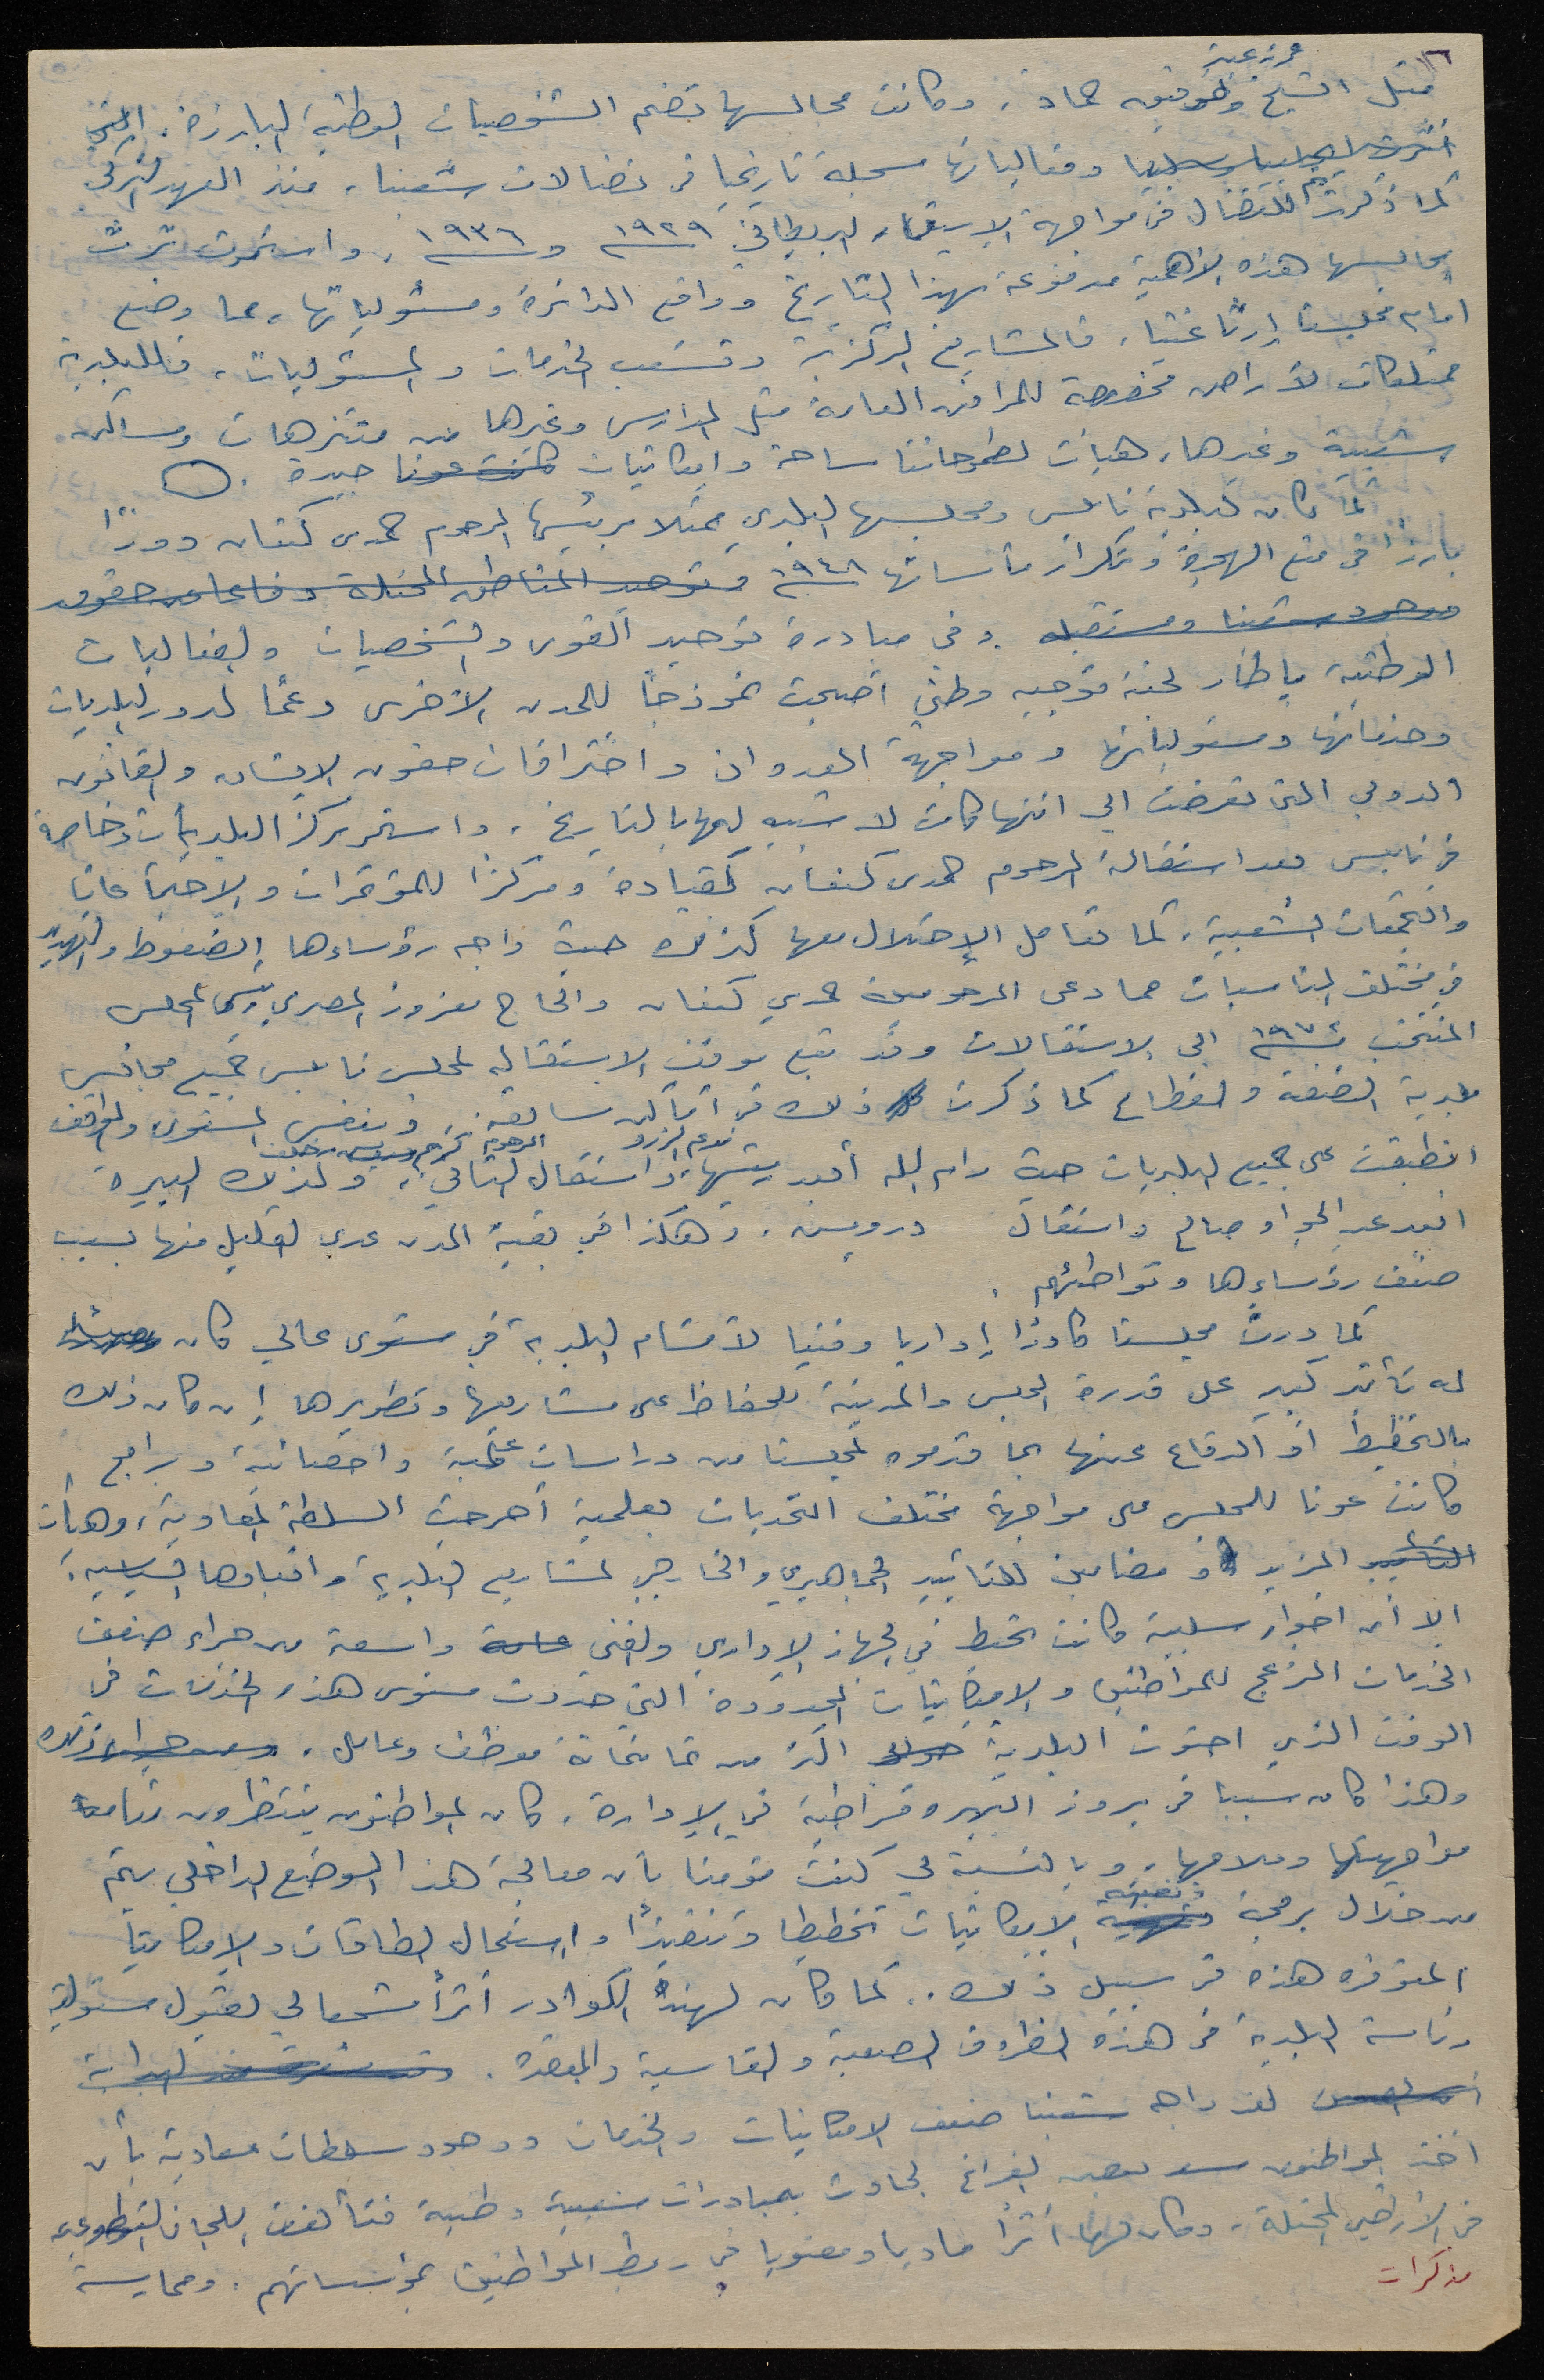 ١٦
عمرزعيتر
مثل الشيخ وتوفيق حماد، وكانت مجالسها تضم الشخصيات الوطنية البارزة، التي
وفعالياتها سجلاً تاريخيا في نضالات شعبنا، منذ العهد التركي
كما ذكرت للنضال في مواجهة الاستعمار البريطاني ١٩٢٩ و ١٩٣٦، واستمرت ترث
مجالسها هذه الأهمية مدفوعة بهذا التاريخ وواقع الدائرة ومسئولياتها، مما وضع
امام مجلسنا إرثا غنيا، فالمشاريع المركزية وتشعب الخدمات والمسئوليات، فللبلدية
ممتلكات لأراضي مخصصة للمرافق العامة مثل المدارس وغيرها من متنزهات ومساكن
شعبية وغيرها، هيأت لطموحاتنا ساحة وامكانيات كانت عونا جيدة .
كما كان لبلدية نابلس ومجلسها البلدي ممثلا برئيسها المرحوم حمدي كنعان دورًا
بارزاً في منع الهجرة وتكرار مأساتها ١٩٤٨ وتوحيد المناطق المحتلة دفاعا عن حقوقه
ووجود شعبنا ومستقبله . وفي مبادرة توحيد القوى والشخصيات والفعاليات
الوطنية بإطار لجنة توجيه وطني أصبحت نموذجاً للمدن الأخرى ودعمًا لدور البلديات
وخدماتها ومسئولياتها ومواجهة العدوان واختراقات حقوق الإنسان والقانون
الدولي التي تعرضت الى انتهاكات لا شبيه لها بالتاريخ، واستمر مركز البلديات وخاصة
في نابلس بعد استقالة المرحوم حمدي كنعان كقيادة ومركزًا للمؤتمرات والاجتماعات
والتجمعات الشعبية، كما تعامل الإحتلال معها كذلك حيث واجه رؤساءها الضغوط والتهديد
في مختلف المناسبات مما دعى المرحومين حمدي كنعان والحاج معزوز المصري رئيسي المجلس
المنتخب ١٩٧٤ الى الاستقالات وقد تبع موقف الاستقالة لمجلس نابلس جميع مجالس
بلدية الضفة والقطاع كما ذكرت ذلك في أماكن سابقة. وبنفس المستوى والموقف
نديم الزرو المرحوم كريم خلف
انطبقت على جميع البلديات حيث رام الله أبعد رئيسها، واستقال الثاني، وكذلك البيرة
ابعد عبد الجواد صالح واستقال درويش . وهكذا في بقية المدن عدى القليل منها بسبب
ضعف رؤساءها وتواطئهم .
كما ورث مجلسنا كادرًا إداريا وفنيا لأقسام البلدية في مستوى عالي كان
له تأثير كبير على قدرة المجلس والمدينة للحفاظ على مشاريعها وتطويرها إن كان ذلك
بالتخطيط أو الدفاع عنها بما قدموه لمجلسنا من دراسات علمية واحصائية وبرامج
كانت عونا للمجلس على مواجهة مختلف التحديات بعلمية أحرجت السلطة المعادية، وهيأت
المزيد من مضامين للتأييد الجماهيري والخارجي لمشاريع البلدية وابعادها السياسية.
الا أن اجواء سلبية كانت تحيط في الجهاز الإداري والفني عامة واسعة من جراء ضعف
الخدمات المزعج للمواطنين والإمكانيات المحدودة التي حددت مستوى هذه الخدمات في
الوقت الذي احتوت البلدية حوالي اكثر من ثمانمائة موظف وعامل . ومن جراء ذلك
وهذا كان سببا في بروز البيروقراطية في الإدارة . كان المواطنون ينتظرون منا
مواجهتها وعلاجها، وبالنسبة لي كنت مؤمنا بأن معالجة هذا الوضع الداخلي يتم
وتعبئة
من خلال برمجة الإمكانيات تخطيطا وتنفيذًا واستعمال الطاقات والإمكانيات
المتوفره هذه في سبيل ذلك .. كما كان لهذه الكوادر أثراً مشجعا لي لقبول مسئولية
رئاسة البلدية في هذه الظروف الصعبة والقاسية والمعقدة .
لقد واجه شعبنا ضعف الامكانيات والخدمات ووجود سلطات معادية بأن
اخذ المواطنون سد بعض الفراغ الحادث بمبادرات شعبية وطنية فتألفت اللجان التطوعية
في الأراضي المحتلة، وكان لها أثراً ماديا ومعنويا في ربط المواطنين بمؤسساتهم . وممارسة
مذكرات